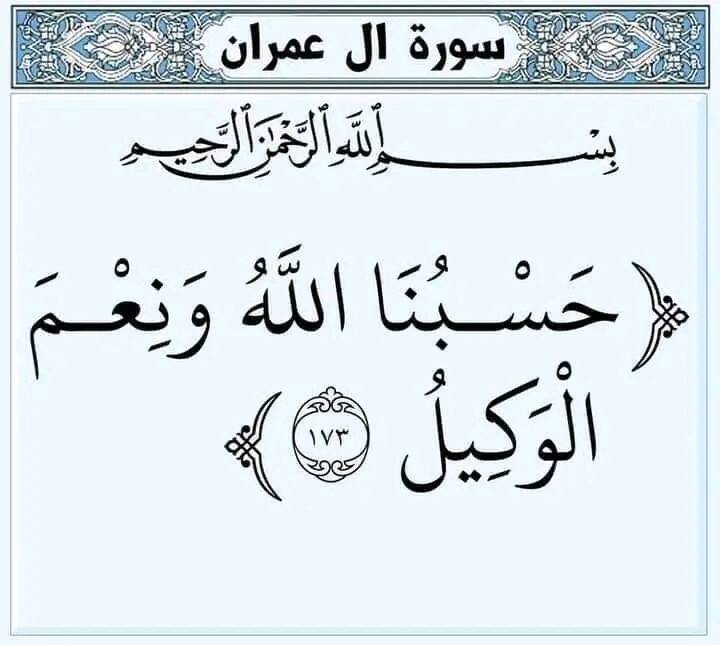 سورة ال عمران
بِسْمِ ٱللَّهِ ٱلرَّحْمَٰنِ ٱلرَّحِيمِ
﴿ حَسْبُنَا اللَّهُ وَنِعْمَ
الْوَكِيلُ ١٧٣ ﴾